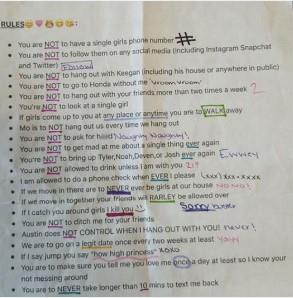 RULES😊💗🙈😊😘:
You are NOT to have a single girls phone number #
You are NOT to follow them on any social media (including Instagram Snapchat
and Twitter)
You are NOT to hang out with Keegan (including his house or anywhere in public)
You are NOT to go to Honda without me "vroom vroom"
You are NOT to hang out with your friends more than two times a week 2
You're NOT to look at a single girl
If girls come up to you at any place or anytime you are to WALK away
Mo is to NOT hang out us every time we hang out
You are NOT to ask for head Naughty Naughty!
You are NOT to get mad at me about a single thing ever again
You're NOT to bring up Tyler,Noah,Deven,or Josh ever again Ewwey
You are NOT allowed to drink unless I am with you 21?
I am allowed to do a phone check when EVER I please (xxx) xxx-xxxx
If we move in there are to NEVER ever be girls at our house NO NO!
If we move in together your friends will RARLEY be allowed over
If I catch you around girls I kill you
You are NOT to ditch me for your friends
Austin does NOT CONTROL WHEN I HANG OUT WITH YOU! never!
We are to go on a legit date once every two weeks at least Yayy
If I say jump you say "how high princess" xoxo
You are to make sure you tell me you love me once a day at least so I know your
not messing around
You are to NEVER take longer than 10 mins to text me back